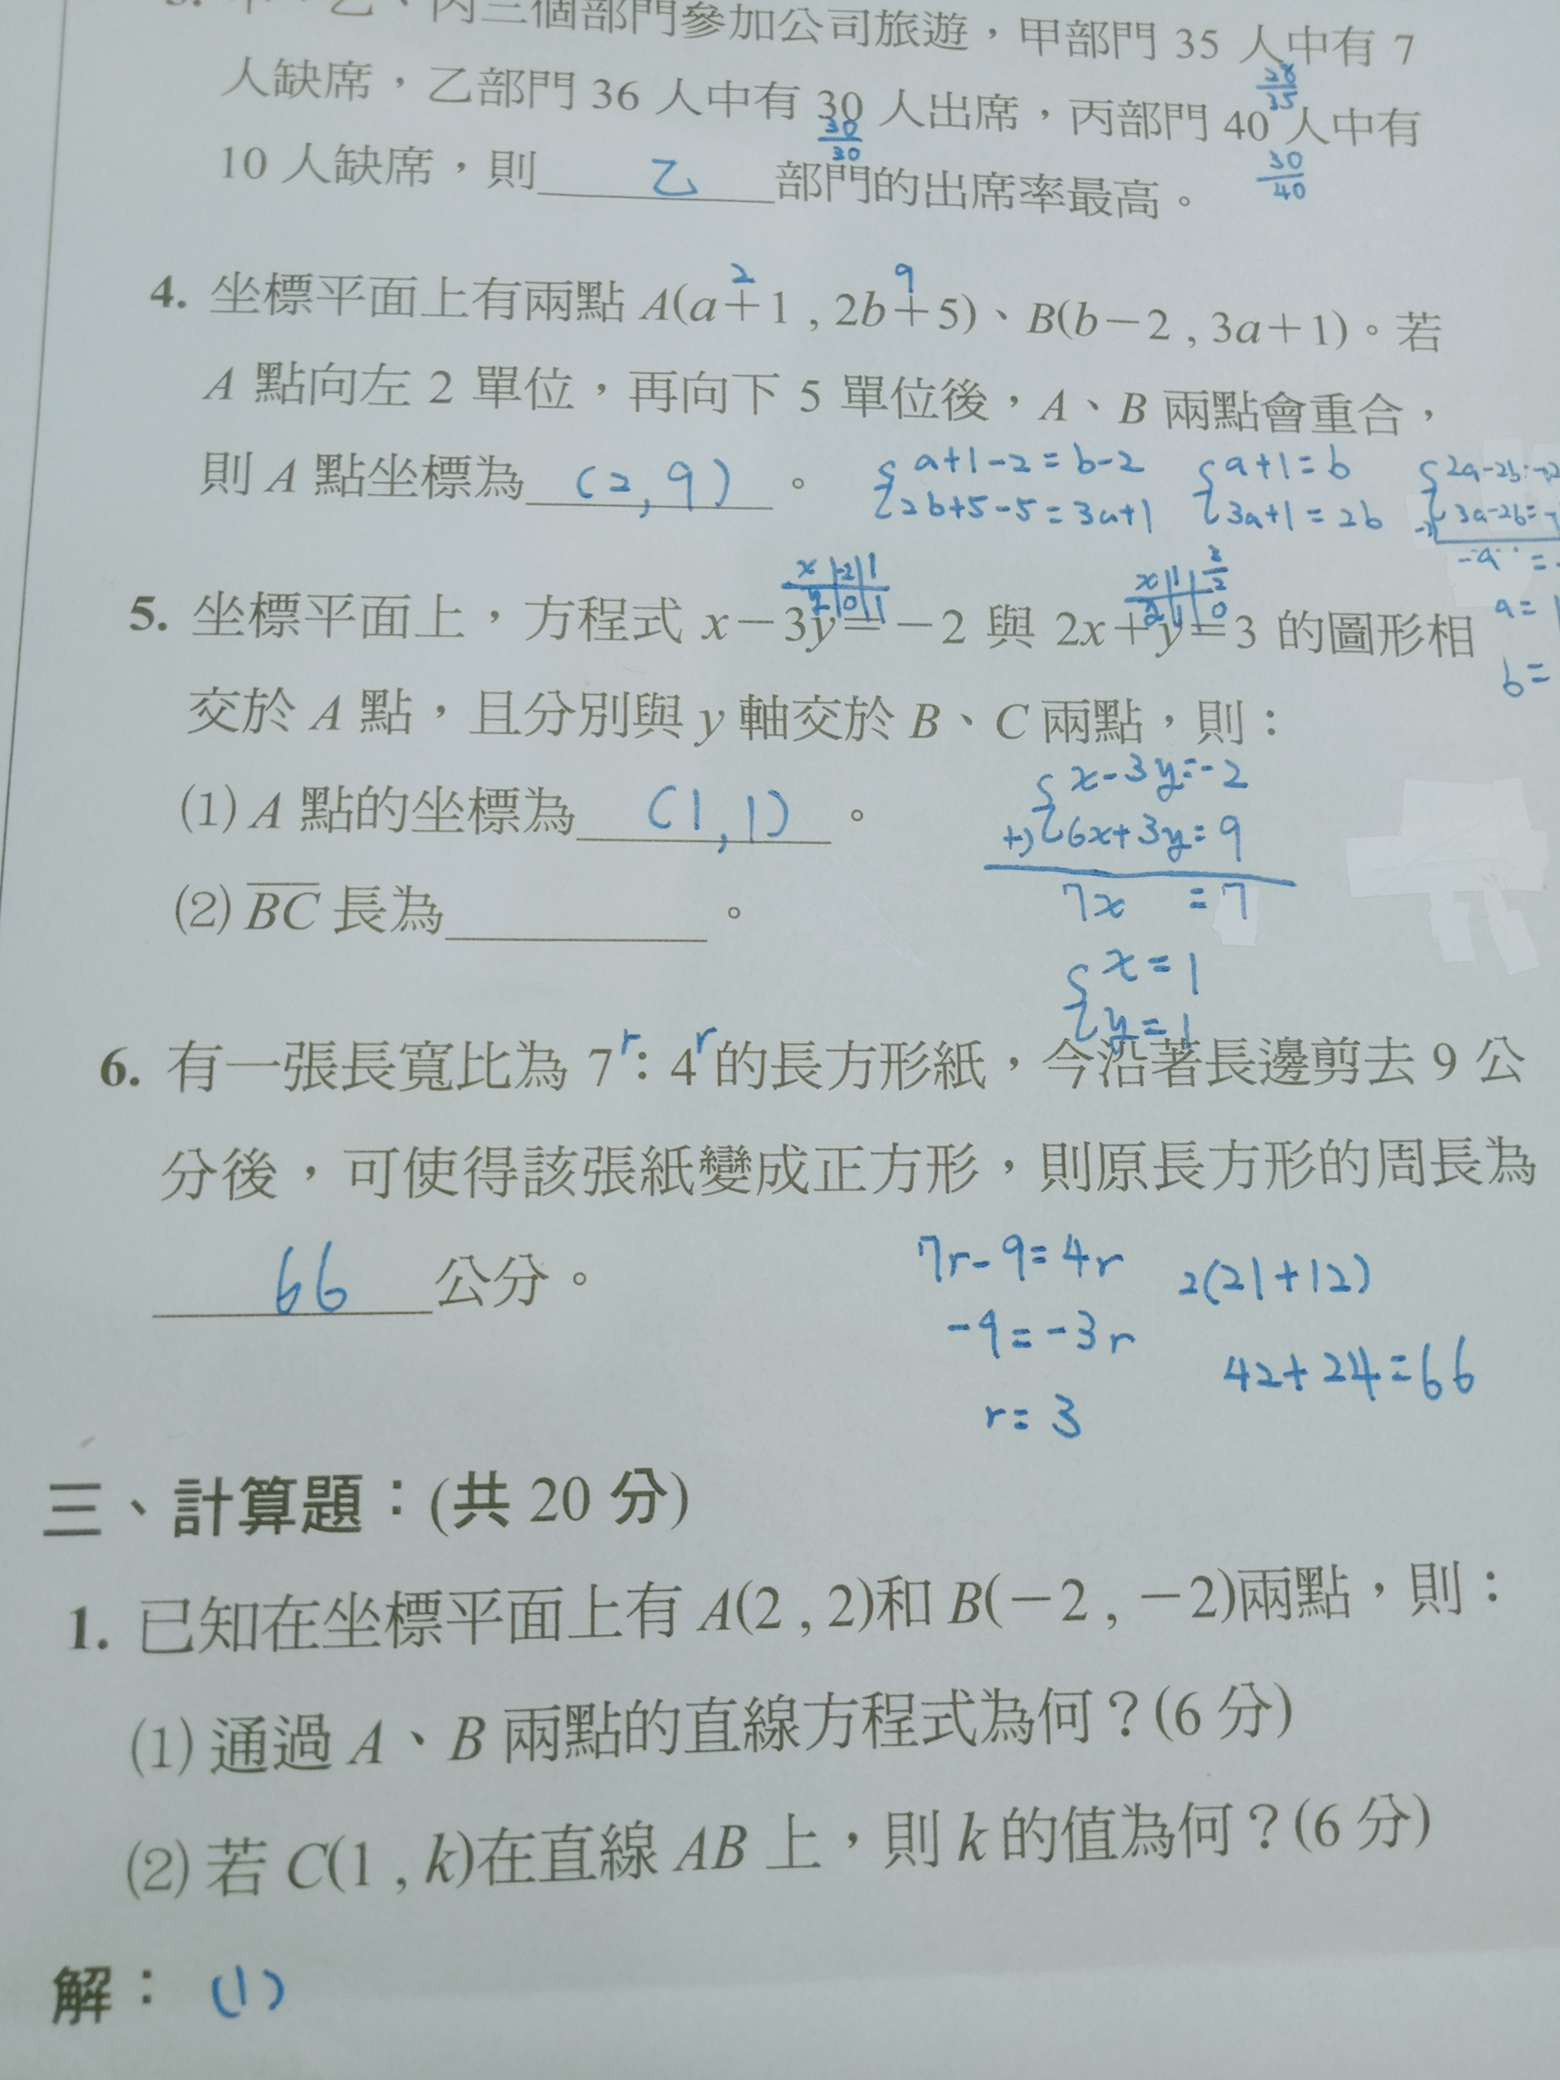 3. 甲、乙、丙三個部門參加公司旅遊，甲部門 35 人中有 7
人缺席，乙部門 36 人中有 30 人出席，丙部門 40 人中有
28/35
30/30
10 人缺席，則 乙 部門的出席率最高。
30/40
2 9
4. 坐標平面上有兩點 A(a+1 , 2b+5)、B(b-2 , 3a+1)。若
A 點向左 2 單位，再向下 5 單位後，A、B 兩點會重合，
則 A 點坐標為 (2, 9) 。
a+1-2=b-2 a+1=b 2a-2b=-2
2b+5-5=3a+1 3a+1=2b -) 3a-2b=-
-a =
a=1
b=
x -2 1
y 0 1
x 1 3/2
y 1 0
5. 坐標平面上，方程式 x-3y=-2 與 2x+y=3 的圖形相
交於 A 點，且分別與 y 軸交於 B、C 兩點，則：
(1) A 點的坐標為 (1, 1) 。
(2) BC 長為 。
x-3y=-2
+) 6x+3y=9
7x =7
x=1
y=1
6. 有一張長寬比為 7r：4r 的長方形紙，今沿著長邊剪去 9 公
分後，可使得該張紙變成正方形，則原長方形的周長為
66 公分。
7r-9=4r 2(21+12)
-9=-3r
42+24=66
r=3
三、計算題：(共 20 分)
1. 已知在坐標平面上有 A(2 , 2)和 B(-2 , -2)兩點，則：
(1) 通過 A、B 兩點的直線方程式為何？(6 分)
(2) 若 C(1 , k)在直線 AB 上，則 k 的值為何？(6 分)
解： (1)